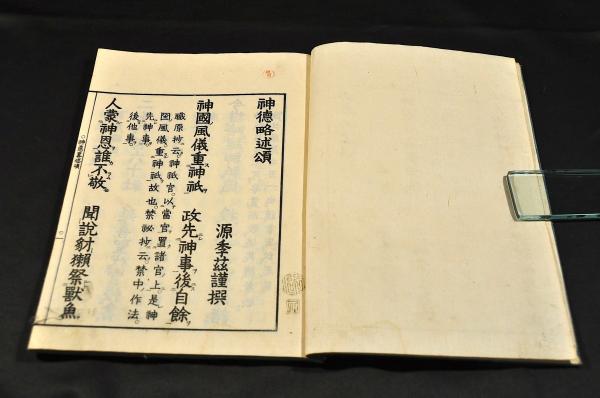 神德略述頌
源季茲謹撰
神國風儀重神祇 政先神事後自餘
職原抄云神祇官以當官置諸官上是神
國風儀重神祇故也禁秘抄云禁中作法
先神事
後他事
人蒙神恩誰不敬 聞說豺獺祭獸魚